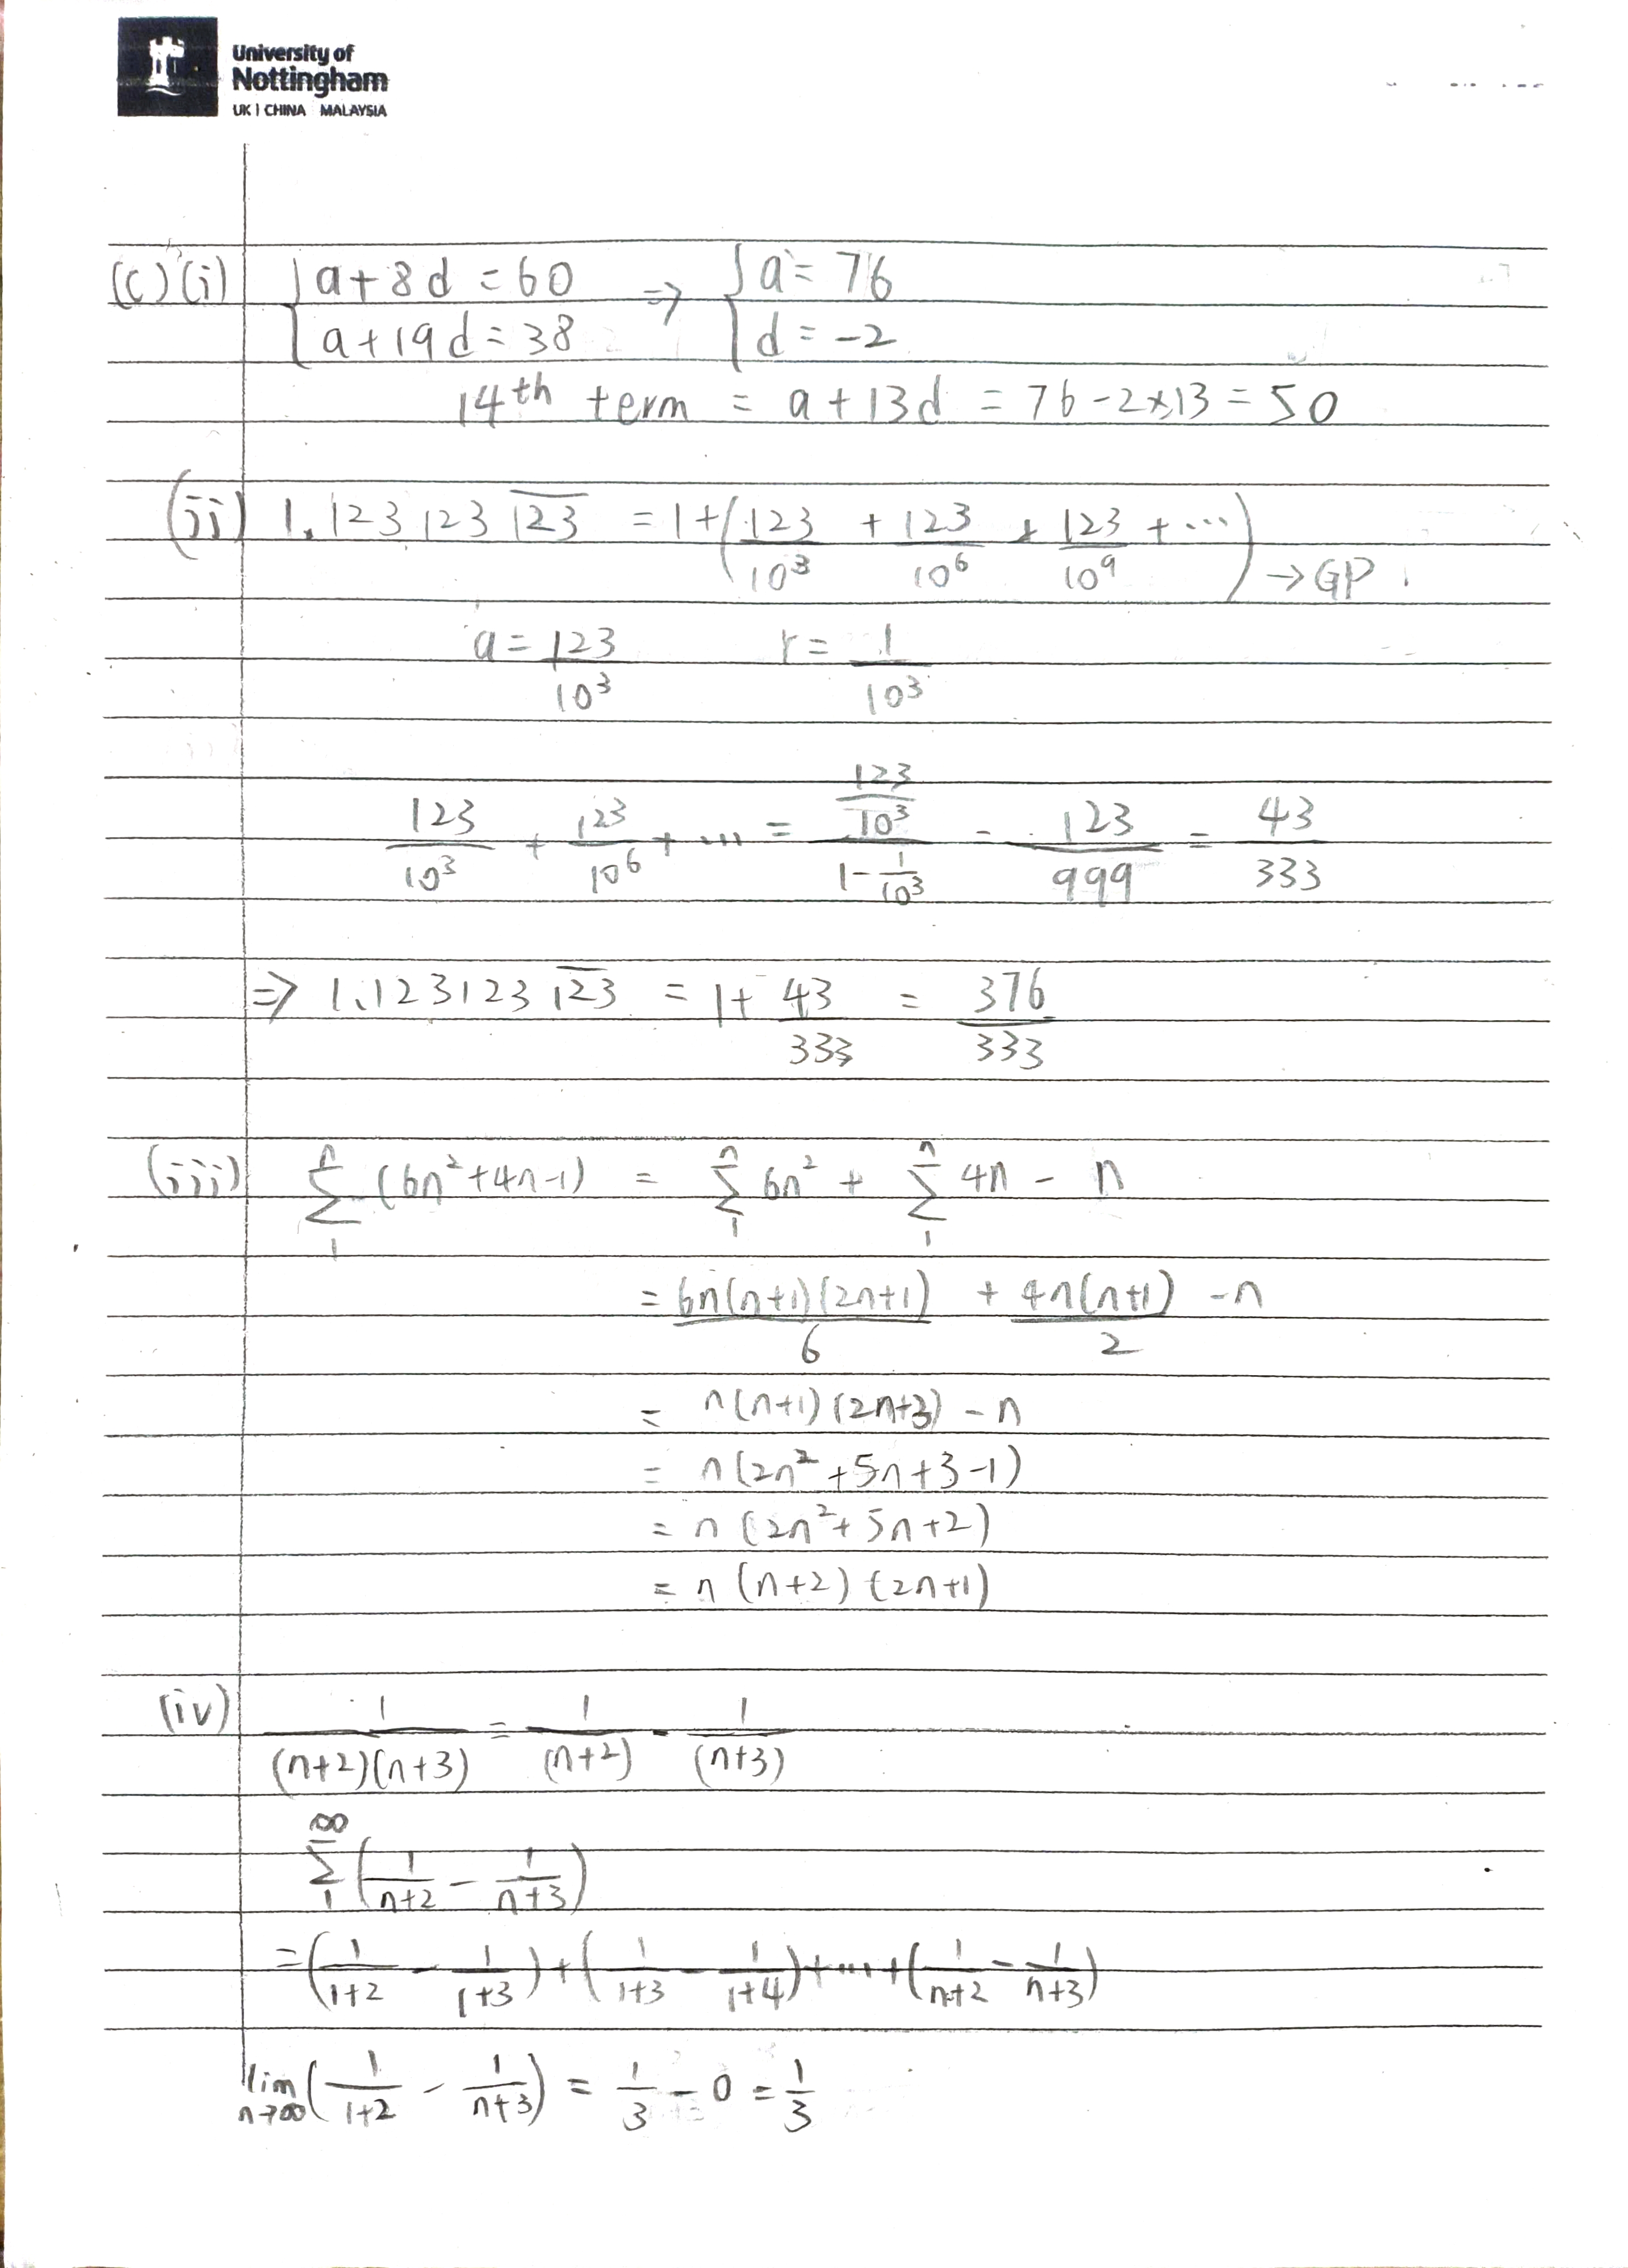 University of
Nottingham
UK | CHINA MALAYSIA
(c)(i) { a+8d=60 ⇒ { a=76
{ a+19d=38 { d=-2
14th term = a+13d = 76-2×13=50
(ii) 1.123123\overline{123} = 1+(123/10^3 + 123/10^6 + 123/10^9 + ...) → GP
a = 123/10^3 r = 1/10^3
123/10^3 + 123/10^6 + ... = (123/10^3)/(1-1/10^3) = 123/999 = 43/333
⇒ 1.123123\overline{123} = 1+ 43/333 = 376/333
(iii) Σ_1^n (6n²+4n-1) = Σ_1^n 6n² + Σ_1^n 4n - n
= 6n(n+1)(2n+1)/6 + 4n(n+1)/2 - n
= n(n+1)(2n+3) - n
= n(2n²+5n+3-1)
= n(2n²+5n+2)
= n(n+2)(2n+1)
(iv) 1/((n+2)(n+3)) = 1/(n+2) - 1/(n+3)
Σ_1^∞ (1/(n+2) - 1/(n+3))
= (1/(1+2) - 1/(1+3)) + (1/(1+3) - 1/(1+4)) + ... + (1/(n+2) - 1/(n+3))
lim_{n→∞} (1/(1+2) - 1/(n+3)) = 1/3 - 0 = 1/3